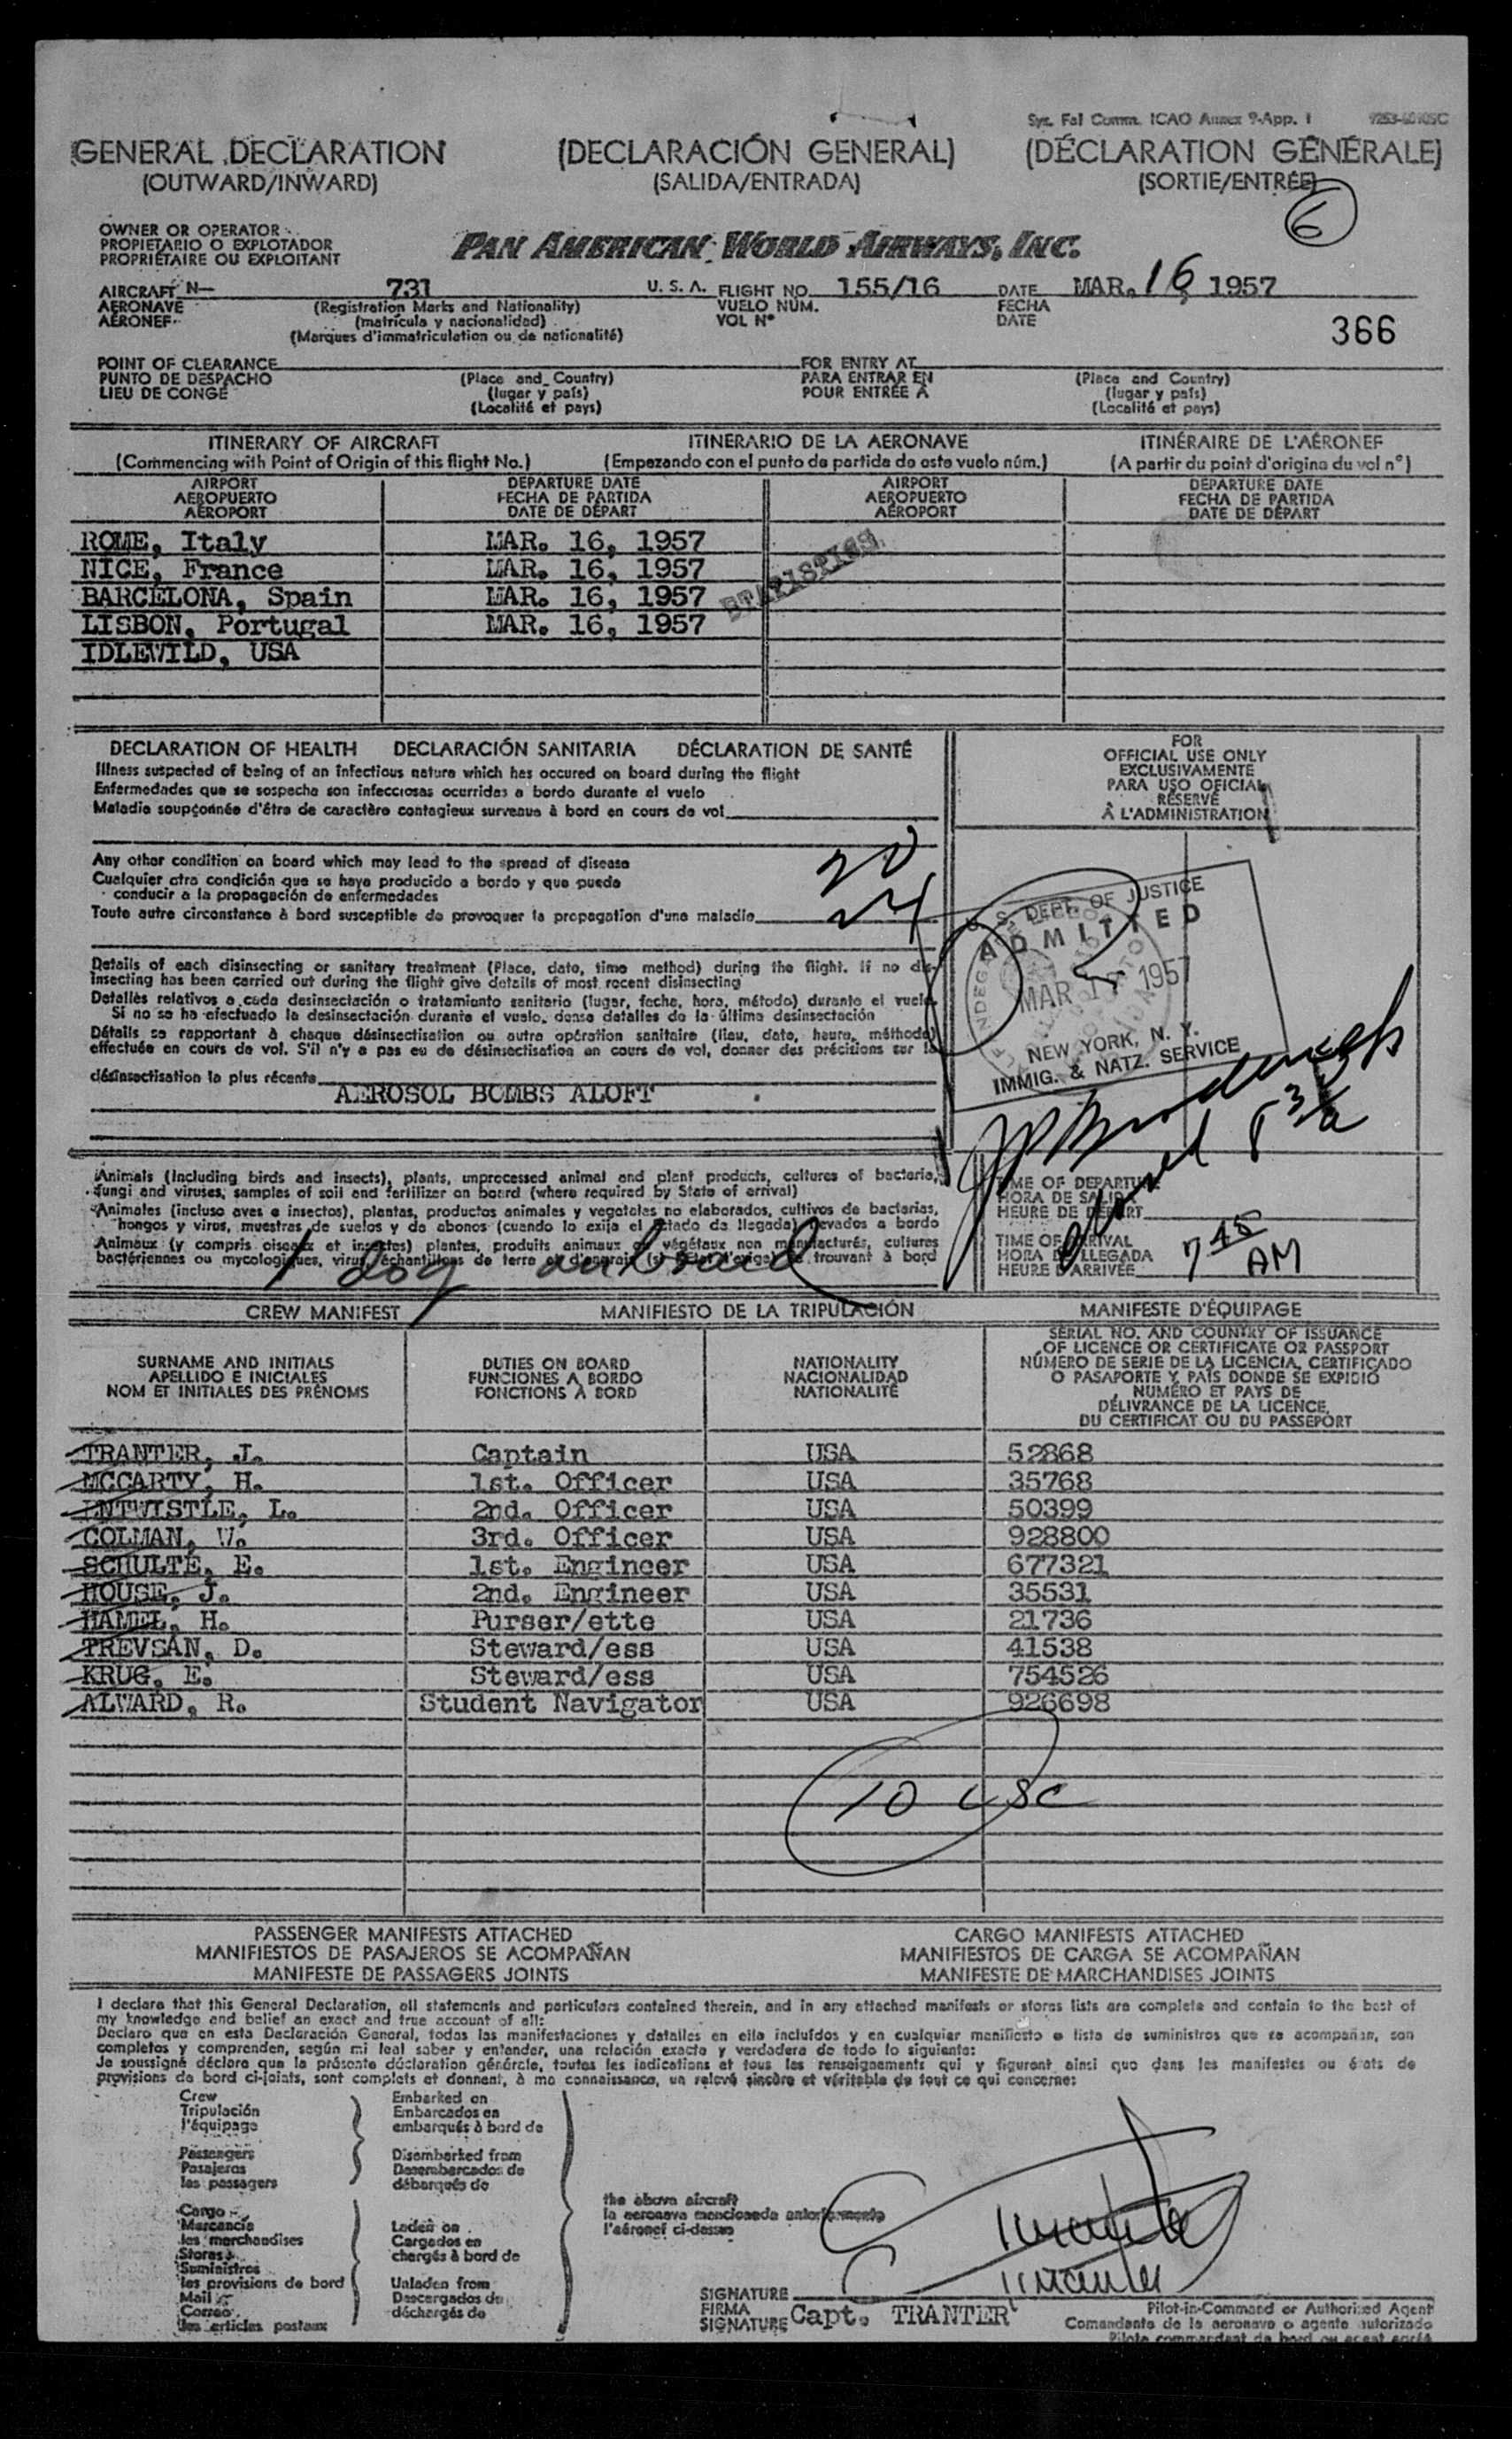 Sys. Fal Comm. ICAO Annex 9-App. 1
GENERAL DECLARATION (DECLARACIÓN GENERAL) (DÉCLARATION GÉNÉRALE)
(OUTWARD/INWARD) (SALIDA/ENTRADA) (SORTIE/ENTRÉE)
6
OWNER OR OPERATOR
PROPIETARIO O EXPLOTADOR
PROPRIÉTAIRE OU EXPLOITANT
PAN AMERICAN WORLD AIRWAYS, INC.
AIRCRAFT N— 731 U. S. A. FLIGHT NO. 155/16 DATE MAR. 16, 1957
AERONAVE (Registration Marks and Nationality) VUELO NÚM. FECHA
AÉRONEF (matrícula y nacionalidad) VOL Nº DATE
(Marques d'immatriculation ou de nationalité)
366
POINT OF CLEARANCE FOR ENTRY AT
PUNTO DE DESPACHO (Place and Country) PARA ENTRAR EN (Place and Country)
LIEU DE CONGÉ (lugar y país) POUR ENTRÉE À (lugar y país)
(Localité et pays) (Localité et pays)
ITINERARY OF AIRCRAFT ITINERARIO DE LA AERONAVE ITINÉRAIRE DE L'AÉRONEF
(Commencing with Point of Origin of this flight No.) (Empezando con el punto de partida de este vuelo núm.) (A partir du point d'origine du vol nº)
AIRPORT DEPARTURE DATE AIRPORT DEPARTURE DATE
AEROPUERTO FECHA DE PARTIDA AEROPUERTO FECHA DE PARTIDA
AÉROPORT DATE DE DÉPART AÉROPORT DATE DE DÉPART
ROME, Italy MAR. 16, 1957
NICE, France MAR. 16, 1957
BARCELONA, Spain MAR. 16, 1957
LISBON, Portugal MAR. 16, 1957
IDLEWILD, USA
STATISTICS
DECLARATION OF HEALTH DECLARACIÓN SANITARIA DÉCLARATION DE SANTÉ
Illness suspected of being of an infectious nature which has occured on board during the flight
Enfermedades que se sospecha son infecciosas ocurridas a bordo durante el vuelo
Maladie soupçonnée d'être de caractère contagieux survenue à bord en cours de vol
Any other condition on board which may lead to the spread of disease
Cualquier otra condición que se haya producido a bordo y que pueda
conducir a la propagación de enfermedades
Toute autre circonstance à bord susceptible de provoquer la propagation d'une maladie
Details of each disinsecting or sanitary treatment (Place, date, time method) during the flight. If no dis-
insecting has been carried out during the flight give details of most recent disinsecting
Detalles relativos a cada desinsectación o tratamiento sanitario (lugar, fecha, hora, método) durante el vuelo.
Si no se ha efectuado la desinsectación durante el vuelo, dense detalles de la última desinsectación
Détails se rapportant à chaque désinsectisation ou autre opération sanitaire (lieu, date, heure, méthode)
effectuée en cours de vol. S'il n'y a pas eu de désinsectisation en cours de vol, donner des précisions sur la
désinsectisation la plus récente
AEROSOL BOMBS ALOFT
FOR
OFFICIAL USE ONLY
EXCLUSIVAMENTE
PARA USO OFICIAL
RÉSERVÉ
À L'ADMINISTRATION
U. S. DEPT. OF JUSTICE
ADMITTED
MAR 1 1957
NEW YORK, N. Y.
IMMIG. & NATZ. SERVICE
Animals (Including birds and insects), plants, unprocessed animal and plant products, cultures of bacteria,
fungi and viruses, samples of soil and fertilizer on board (where required by State of arrival)
Animales (incluso aves e insectos), plantas, productos animales y vegetales no elaborados, cultivos de bacterias,
hongos y virus, muestras de suelos y de abonos (cuando lo exija el Estado de llegada) llevados a bordo
Animaux (y compris oiseaux et insectes) plantes, produits animaux ou végétaux non manufacturés, cultures
bactériennes ou mycologiques, virus, échantillons de terre et d'engrais (si l'État l'exige) se trouvant à bord
1 dog on board
TIME OF DEPARTURE
HORA DE SALIDA
HEURE DE DÉPART
TIME OF ARRIVAL
HORA DE LLEGADA
HEURE D'ARRIVÉE 7 45 AM
CREW MANIFEST MANIFIESTO DE LA TRIPULACIÓN MANIFESTE D'ÉQUIPAGE
SURNAME AND INITIALS DUTIES ON BOARD NATIONALITY SERIAL NO. AND COUNTRY OF ISSUANCE
APELLIDO E INICIALES FUNCIONES A BORDO NACIONALIDAD OF LICENCE OR CERTIFICATE OR PASSPORT
NOM ET INITIALES DES PRÉNOMS FONCTIONS À BORD NATIONALITÉ NÚMERO DE SERIE DE LA LICENCIA, CERTIFICADO
O PASAPORTE Y PAÍS DONDE SE EXPIDIÓ
NUMÉRO ET PAYS DE
DÉLIVRANCE DE LA LICENCE,
DU CERTIFICAT OU DU PASSEPORT
TRANTER, J. Captain USA 52868
MCCARTY, H. 1st. Officer USA 35768
ENTWISTLE, L. 2nd. Officer USA 50399
COLMAN, W. 3rd. Officer USA 928800
SCHULTE, E. 1st. Engineer USA 677321
HOUSE, J. 2nd. Engineer USA 35531
HAMEL, H. Purser/ette USA 21736
TREVSAN, D. Steward/ess USA 41538
KRUG, E. Steward/ess USA 754526
ALWARD, R. Student Navigator USA 926698
10 USC
PASSENGER MANIFESTS ATTACHED CARGO MANIFESTS ATTACHED
MANIFIESTOS DE PASAJEROS SE ACOMPAÑAN MANIFIESTOS DE CARGA SE ACOMPAÑAN
MANIFESTE DE PASSAGERS JOINTS MANIFESTE DE MARCHANDISES JOINTS
I declare that this General Declaration, all statements and particulars contained therein, and in any attached manifests or stores lists are complete and contain to the best of
my knowledge and belief an exact and true account of all:
Declaro que en esta Declaración General, todas las manifestaciones y detalles en ella incluídos y en cualquier manifiesto o lista de suministros que se acompañan, son
completos y comprenden, según mi leal saber y entender, una relación exacta y verdadera de todo lo siguiente:
Je soussigné déclare que la présente déclaration générale, toutes les indications et tous les renseignements qui y figurent ainsi que dans les manifestes ou états de
provisions de bord ci-joints, sont complets et donnent, à ma connaissance, un relevé sincère et véritable de tout ce qui concerne:
Crew Embarked on
Tripulación Embarcados en
l'équipage embarqués à bord de
Passengers Disembarked from
Pasajeros Desembarcados de
les passagers débarqués de
the above aircraft
la aeronave mencionada anteriormente
l'aéronef ci-dessus
Cargo
Mercancía Laden on
les merchandises Cargados en
Stores chargés à bord de
Suministros
les provisions de bord Unladen from
Mail Descargados de
Correo déchargés de
les articles postaux
SIGNATURE
FIRMA
SIGNATURE Capt. TRANTER
Pilot-in-Command or Authorized Agent
Comandante de la aeronave o agente autorizado
Pilote commandant de bord ou agent agréé